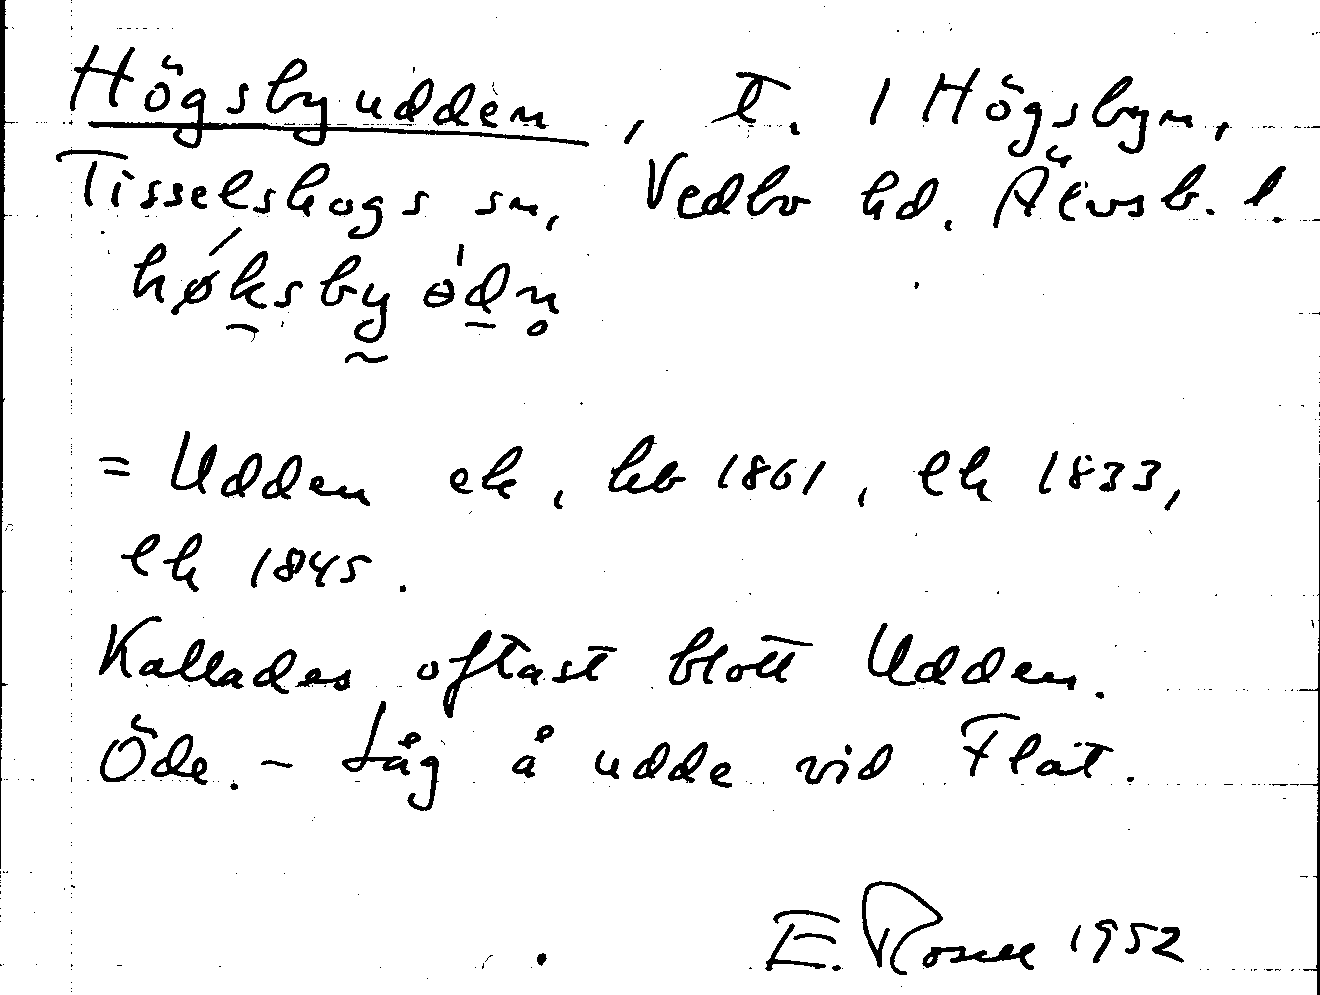 Högsbyudden, t. 1 Högsbyn,
Tisselskogs sn, Vedbo hd. Älvsb. l.
høksbyɵdn̥
= Udden ek, hb 1861, lk 1833,
lk 1845.
Kallades oftast blott Udden.
Öde. - Låg å udde vid Flåt.
E. Rosell 1952